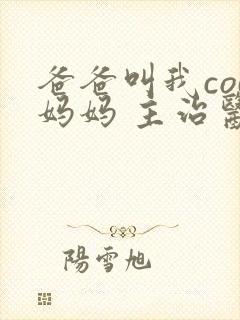 爸爸叫我co
妈妈 主治醫
陽雪旭